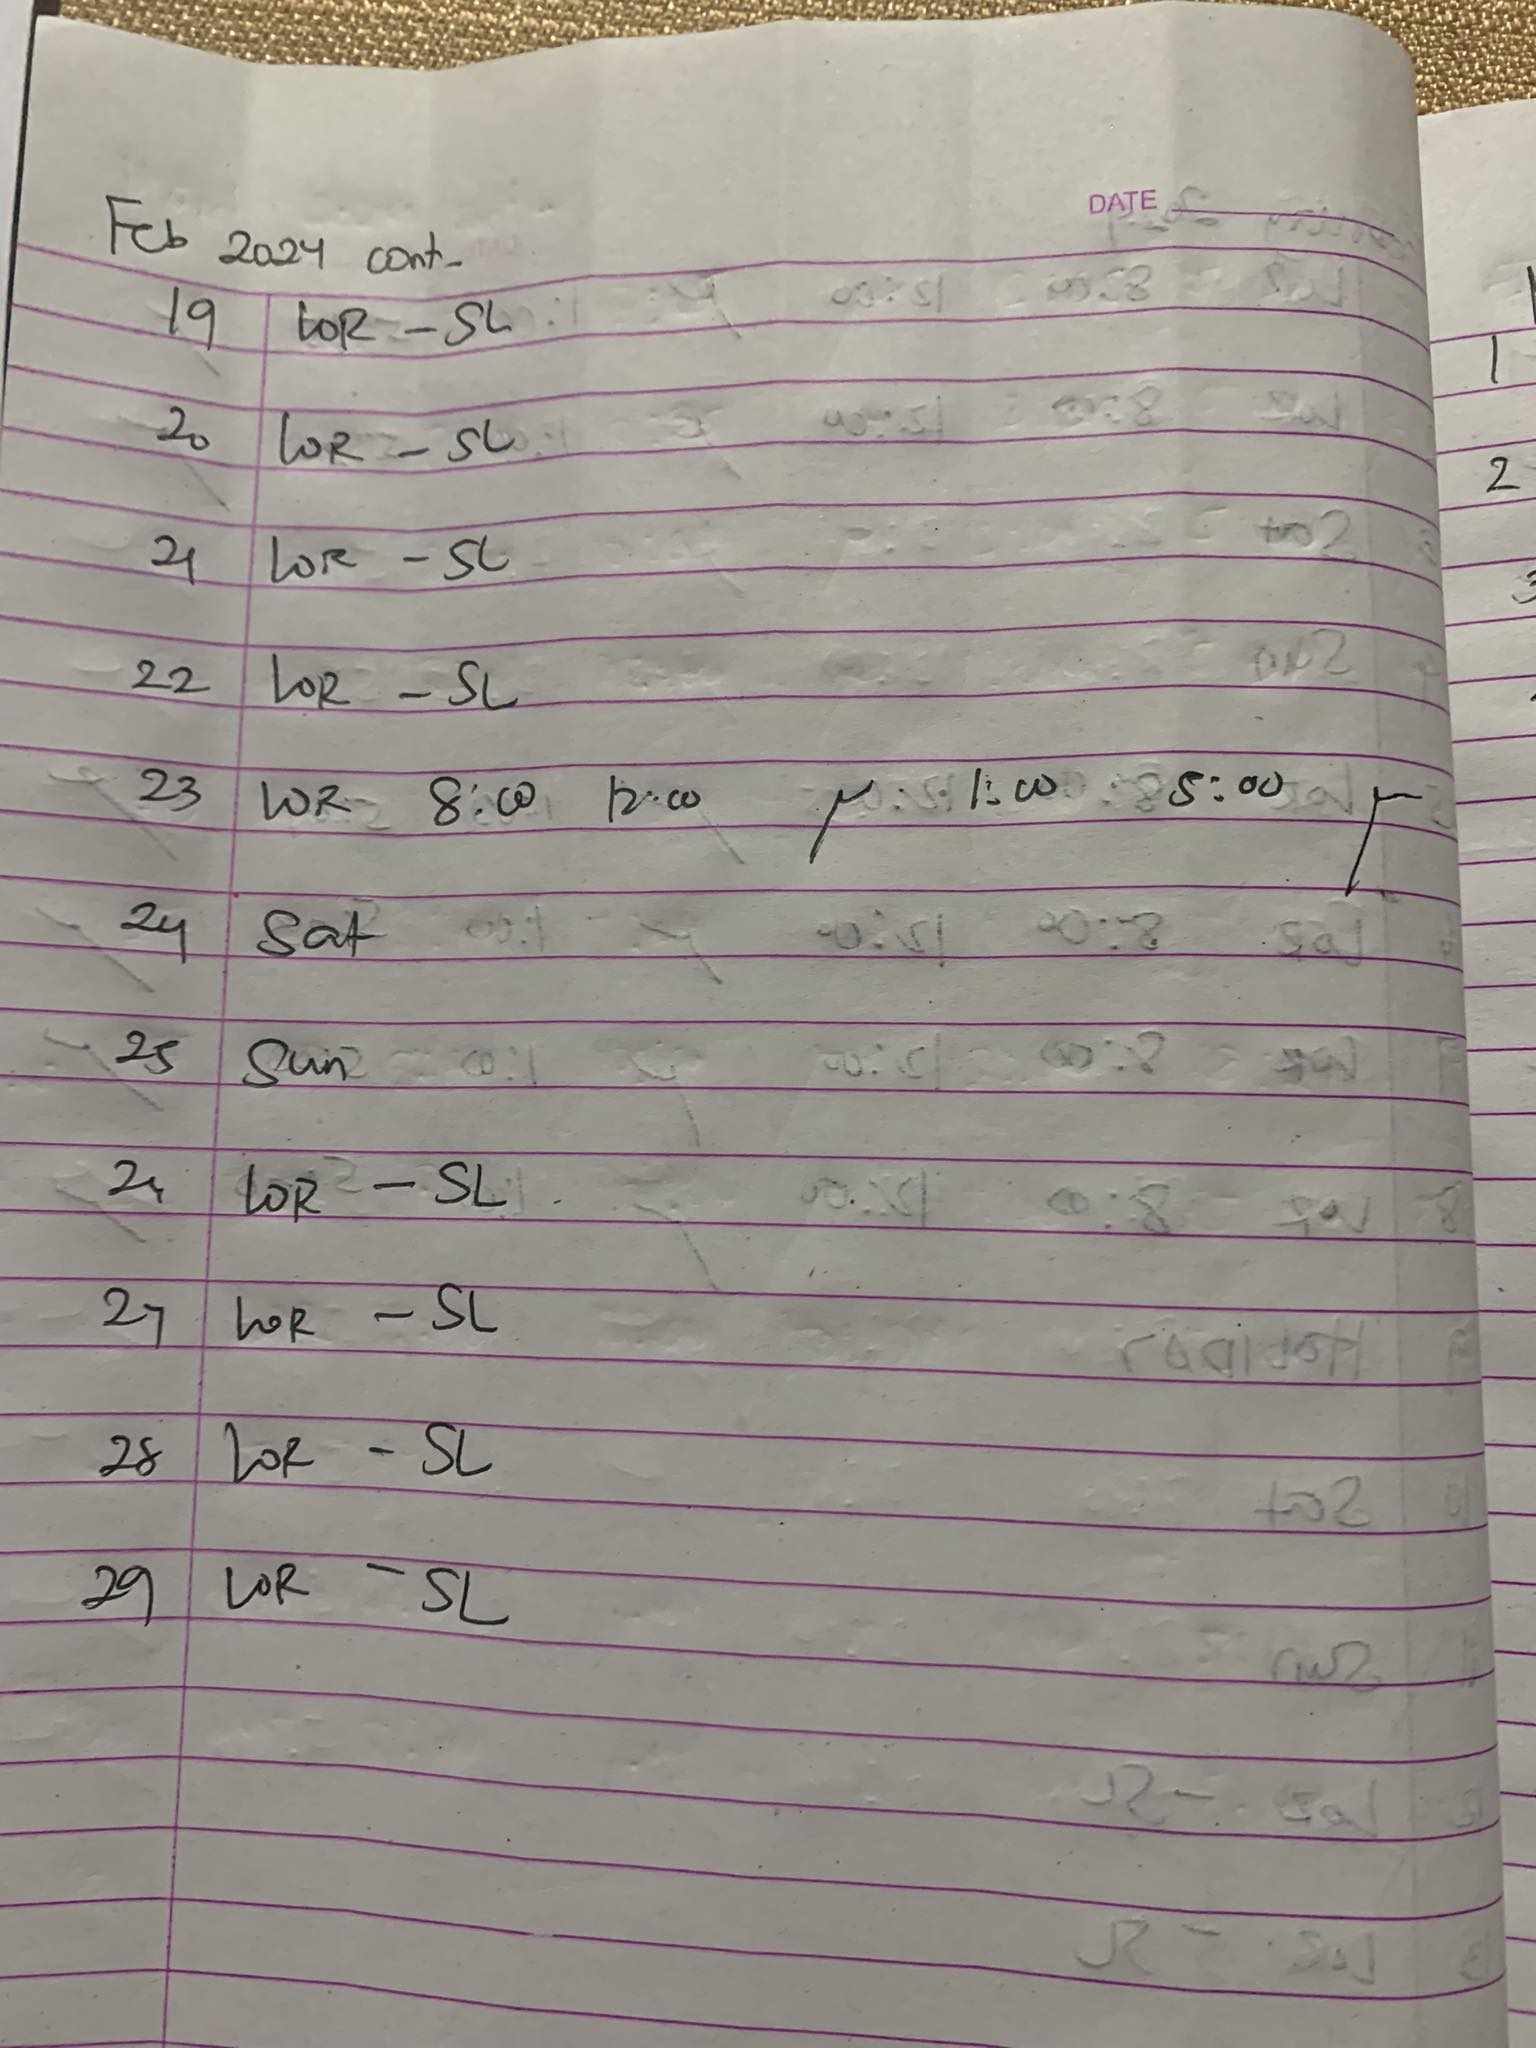 DATE
Feb 2024 cont-
19 LOR - SL
20 LOR - SL
21 LOR - SL
22 LOR - SL
23 LOR 8:00 12:00 1:00 5:00
24 Sat
25 Sun
26 LOR - SL
27 LOR - SL
28 LOR - SL
29 LOR - SL
1
2
3